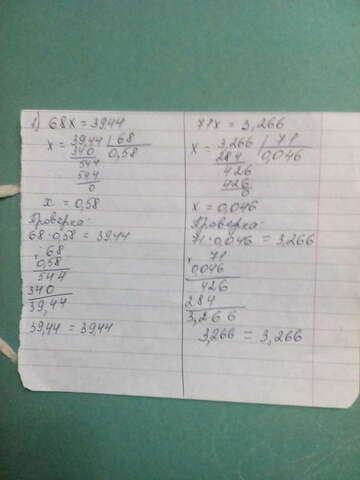 1) 68x = 39,44
x = 39,44 | 68
340 0,58
544
544
0
x = 0,58
Проверка:
68 · 0,58 = 39,44
× 68
0,58
544
340
39,44
39,44 = 39,44
71x = 3,266
x = 3,266 | 71
284 0,046
426
426
0
x = 0,046
Проверка:
71 · 0,046 = 3,266
× 71
0,046
426
284
3,266
3,266 = 3,266